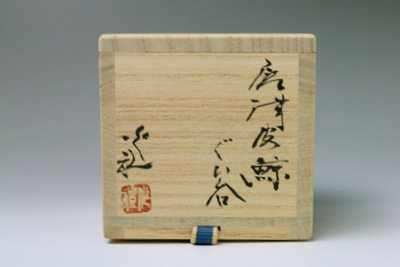 唐津皮鯨
ぐい呑